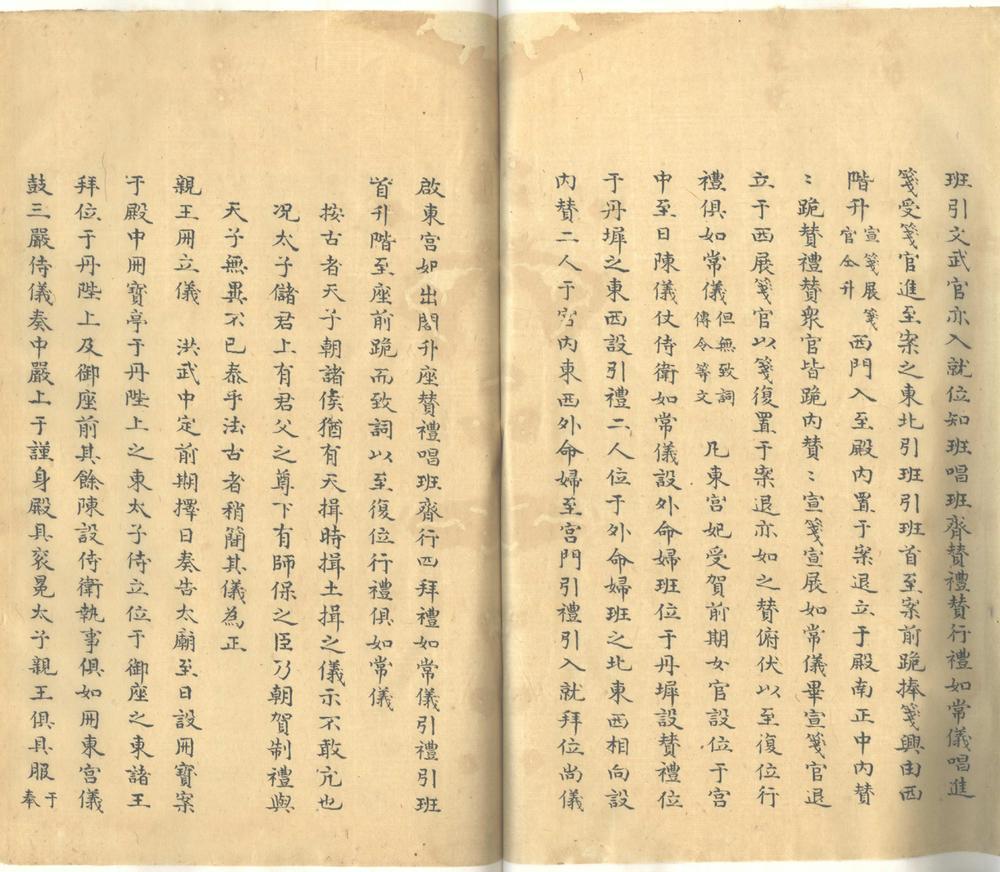 班引文武官亦入就位知班唱班齊贊禮贊行禮如常儀唱進
箋受箋官進至案之東北引班引班首至案前跪捧箋興由西
階升宣箋展箋官仝升西門入至殿內置于案退立于殿南正中內贊
〻跪贊禮贊衆官皆跪內贊〻宣箋宣展如常儀畢宣箋官退
立于西展箋官以箋復置于案退亦如之贊俯伏以至復位行
禮俱如常儀但無致詞傳令等文 凡東宮妃受賀前期女官設位于宮
中至日陳儀仗侍衛如常儀設外命婦班位于丹墀設贊禮位
于丹墀之東西設引禮二人位于外命婦班之北東西相向設
內贊二人于宮內東西外命婦至宮門引禮引入就拜位尚儀
啟東宮妃出閤升座贊禮唱班齊行四拜禮如常儀引禮引班
首升階至座前跪而致詞以至復位行禮俱如常儀
按古者天子朝諸侯猶有天揖時揖土揖之儀示不敢亢也
况太子儲君上有君父之尊下有師保之臣乃朝賀制禮與
天子無異不已泰乎法古者稍簡其儀為正
親王冊立儀 洪武中定前期擇日奏告太廟至日設冊寶案
于殿中冊寶亭于丹陛上之東太子侍立位于御座之東諸王
拜位于丹陛上及御座前其餘陳設侍衛執事俱如冊東宮儀
鼓三嚴侍儀奏中嚴上于謹身殿具袞冕太子親王俱具服于奉